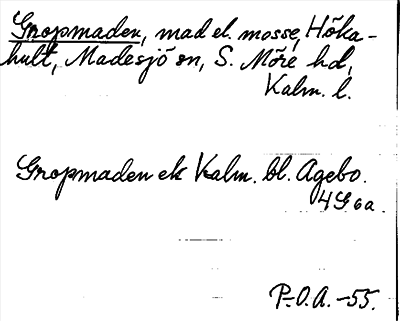 Gropmaden, mad el. mosse, Höka-
hult, Madesjö sn, S. Möre hd,
Kalm. l.
Gropmaden ek Kalm. bl. Agebo.
4G6a.
P.O.A. -55.